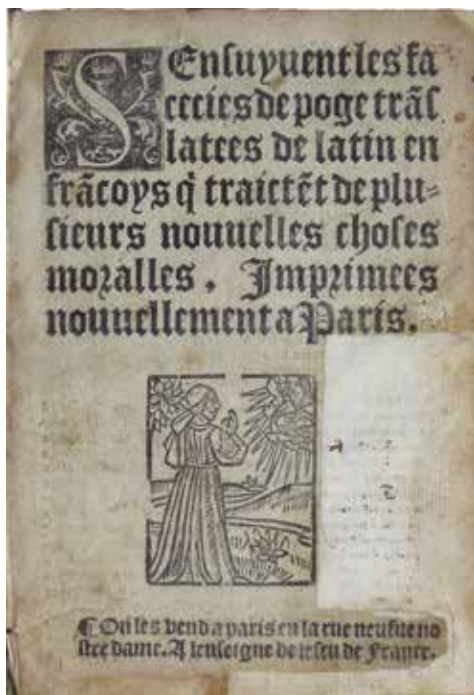 SEnsuyuent les fa
cecies de poge trãs
latees de latin en
frãcoys q̃ traictẽt de plu-
sieurs nouuelles choses
moralles. Imprimees
nouuellement a Paris.
¶ On les vend a paris en la rue neufue no
stre dame. A lenseigne de lescu de France.